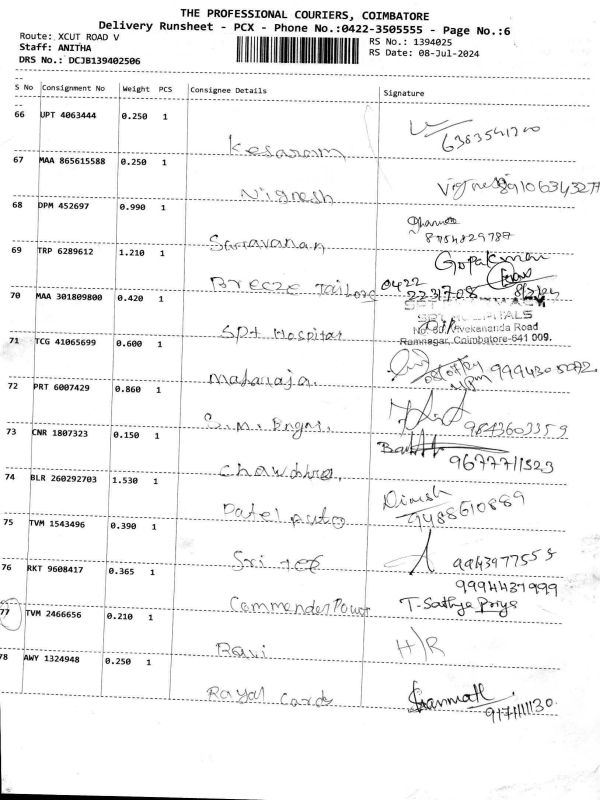 THE PROFESSIONAL COURIERS, COIMBATORE
Delivery Runsheet - PCX - Phone No.:0422-3505555 - Page No.:6
Route: XCUT ROAD V
RS No.: 1394025
Staff: ANITHA
RS Date: 08-Jul-2024
DRS No.: DCJB139402506
S No Consignment No Weight PCS Consignee Details Signature
66 UPT 4063444 0.250 1
Kesaram 6383541700
67 MAA 865615588 0.250 1
Vignesh Vignesh 9106343277
68 DPM 452697 0.990 1
Saravanan 8754829787
69 TRP 6289612 1.210 1 Gopakumar
Breeze Tailors 0422 2231708 8/7/24
70 MAA 301809800 0.420 1
Spt Hospital
No. 80, Vivekananda Road
Ramnagar, Coimbatore-641 009.
71 TCG 41065699 0.600 1
Maharaja. 08/07/24 9994305072
72 PRT 6007429 0.860 1
S.M. Engrs. 9843603359
73 CNR 1807323 0.150 1
9677711323
74 BLR 260292703 1.530 1
Patel auto Dinesh 9488610889
75 TVM 1543496 0.390 1
Sri 9943977555
76 RKT 9608417 0.365 1 9994437999
Commender Power T-Sathya Priya
77 TVM 2466656 0.210 1
Ravi H/R
78 AWY 1324948 0.250 1
Royal Cards 9171111130